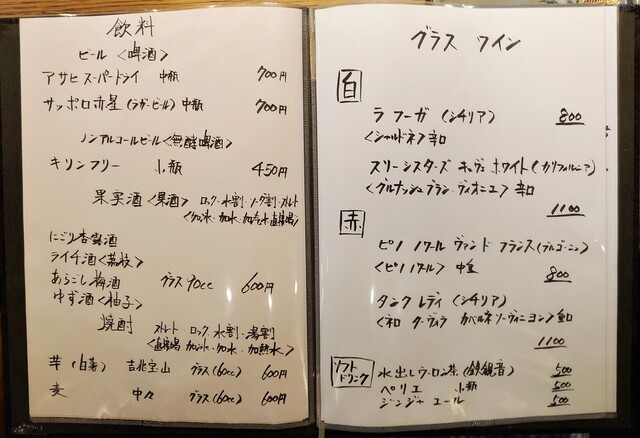 飲料
ビール <啤酒>
アサヒスーパードライ 中瓶 700円
サッポロ赤星(ラガービール)中瓶 700円
ノンアルコールビール<無酵啤酒>
キリンフリー 小瓶 450円
果実酒<果酒> ロック・水割・ソーダ割・ストレート
にごり杏露酒
ライチ酒<荔枝>
あらごし梅酒 グラス90cc 600円
ゆず酒<柚子>
焼酎 ストレート・ロック・水割・湯割
芋(白薯) 吉兆宝山 グラス(60cc) 600円
麦 中々 グラス(60cc) 600円
グラス ワイン
白
ラ フーガ (シチリア) 800
<シャルドネ> 辛口
スリーシスターズ キュヴェ ホワイト(カリフォルニア)
<グルナッシュブラン・ヴィオニエ> 辛口
1100
赤
ピノ ノワール ヴァン ド フランス(ブルゴーニュ)
<ピノ ノワール> 中重 800
タンク レディ (シチリア)
<ネロ ダーヴィラ カベルネソーヴィニヨン> 重口
1100
ソフトドリンク
水出しウーロン茶(鉄観音) 500
ペリエ 小瓶 500
ジンジャエール 500